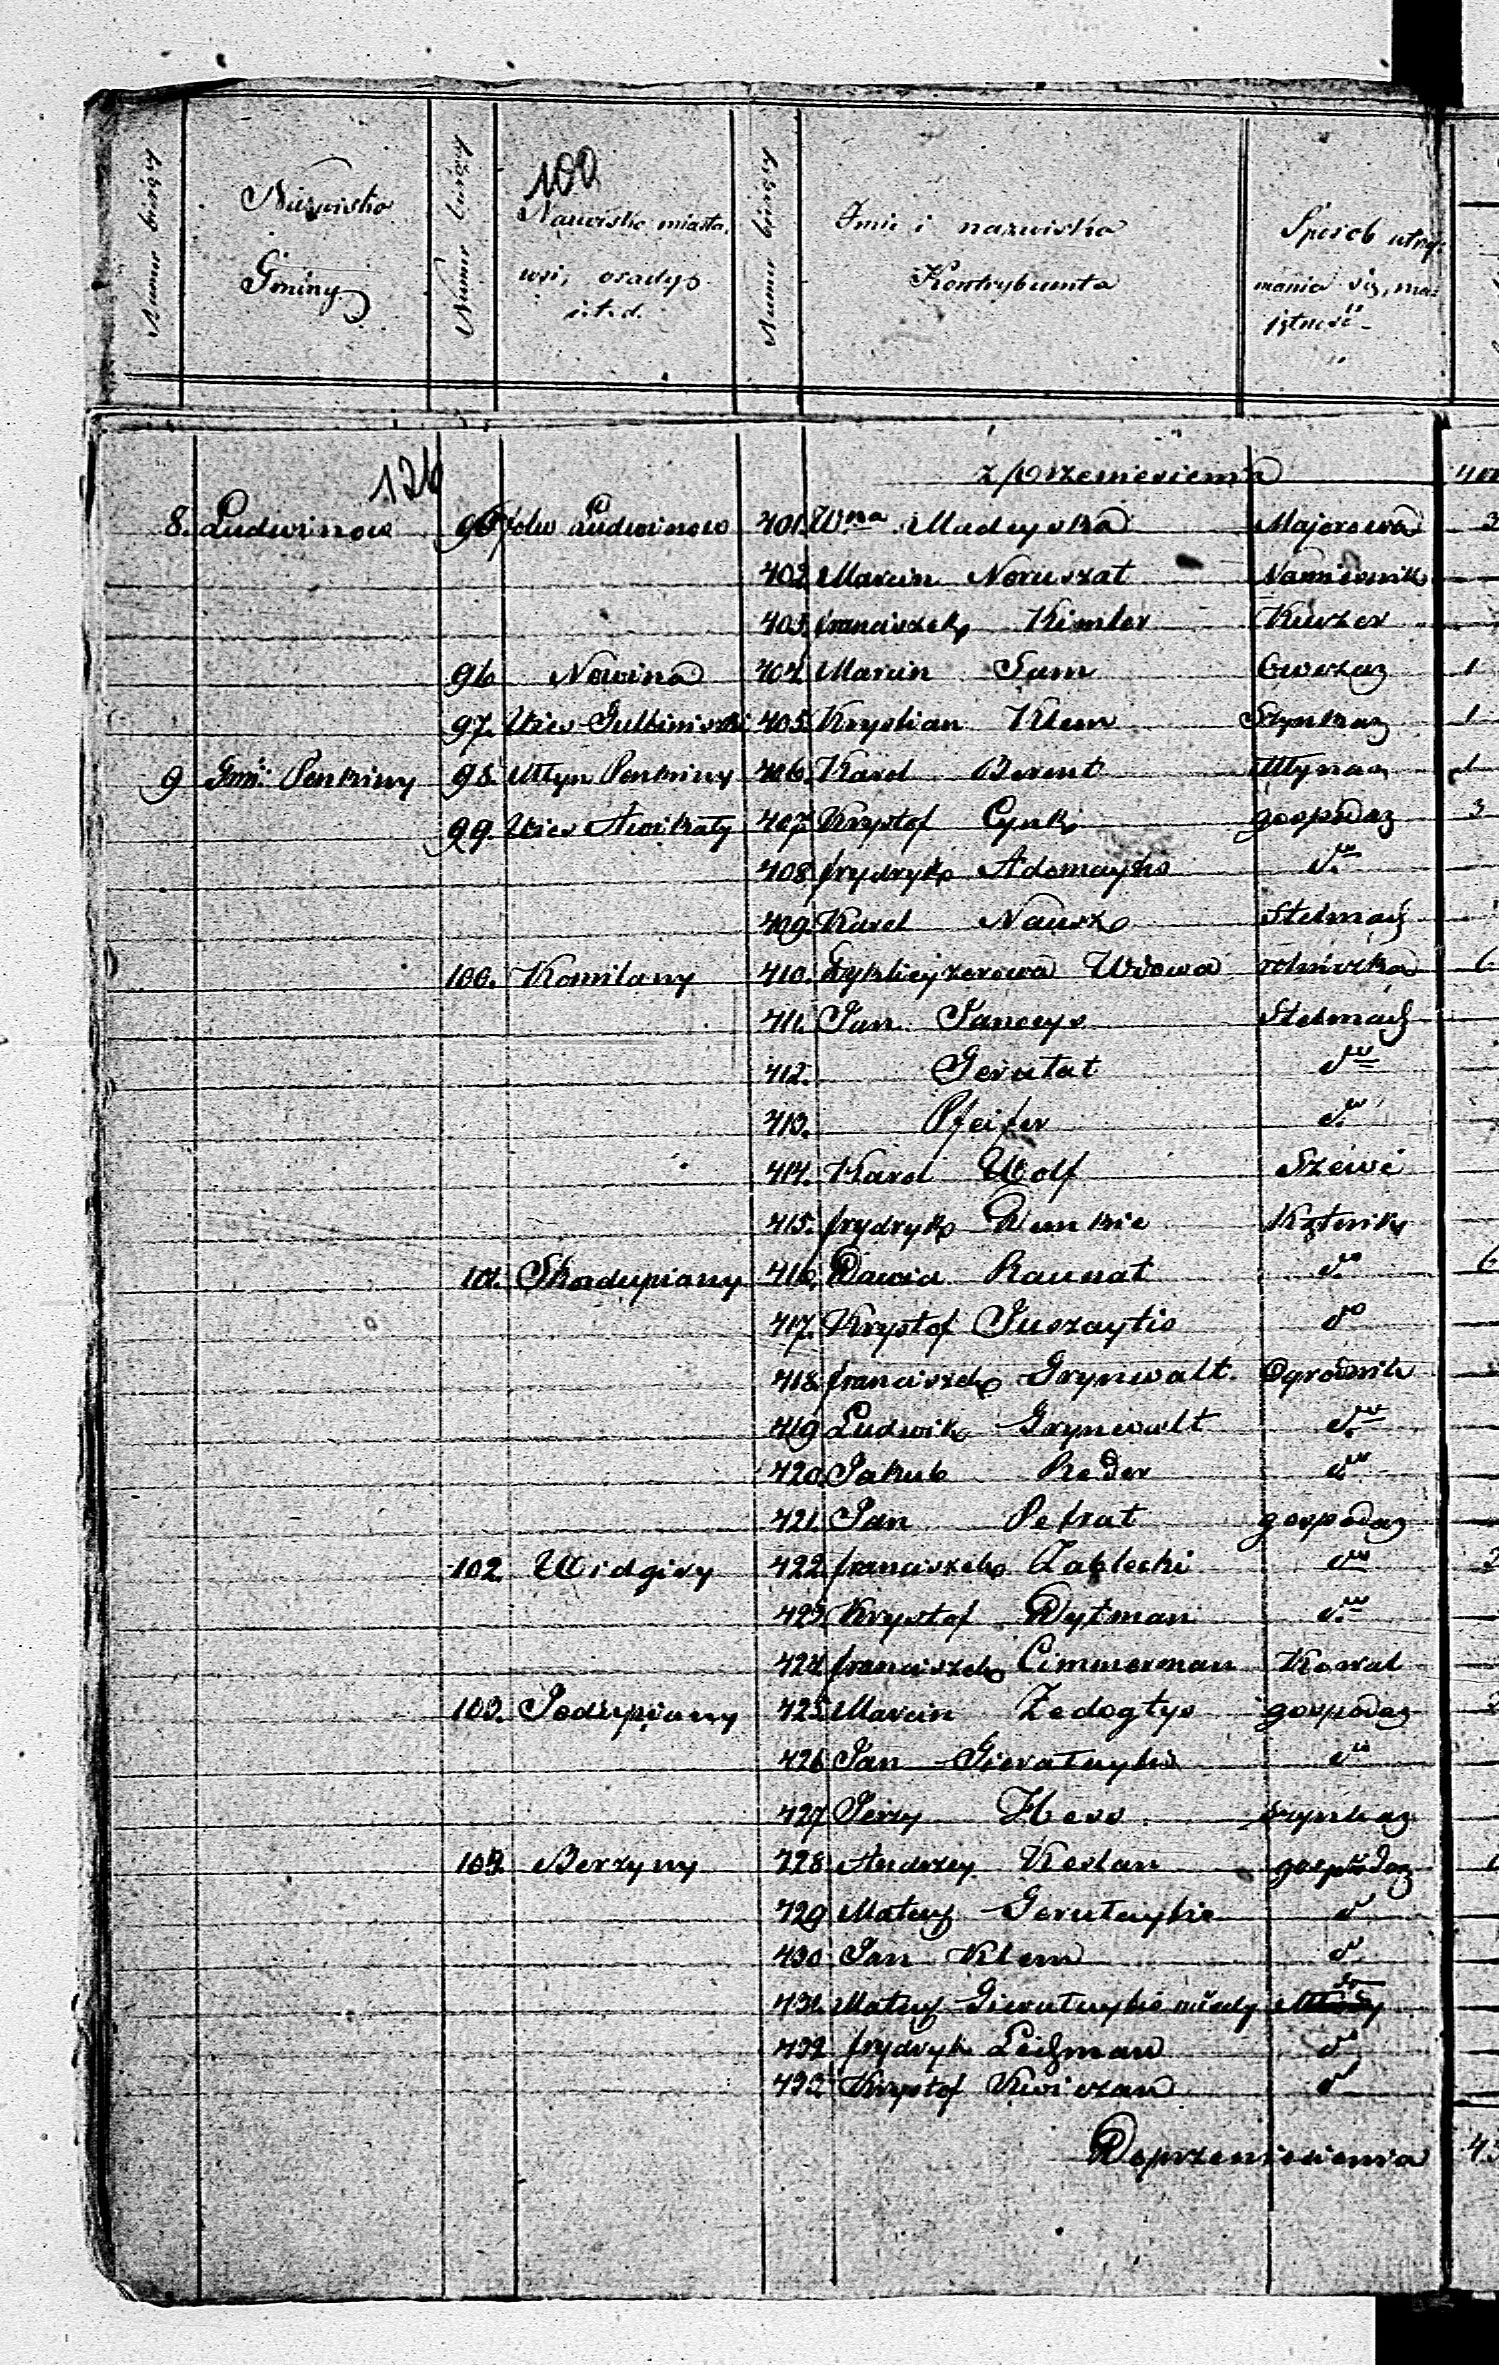 100
Numer bieżący
Nazwisko Gminy
Numer bieżący
Nazwisko miasta, wsi, osady i.t.d.
Numer bieżący
Imie i nazwisko Kontrybuenta
Sposób utrzymania się, majętność
126
z przeniesienia 400
8. Ludwinow 95 folw Ludwinow 401. Wna Madeyska Majorowa 3
402 Marcin Noruszat Namiesnik
403. franciszek Kimler Kuczer
96 Nowina 404. Marcin Tam Owczaz 1
97. Wies Gulbiniszki 405. Krystian Klem Szynkaz 1
9 Gmi: Penkiny 98. Młyn Penkiny 406. Karol Berent Młynaz 1
99. Wies 407. Krystof Cynk gospodaz 3
408. frydryk Adomaytis do
409 Karol Nausz Stelmach
100. Komilany 410. Wdowa rolniczka 6
411. Jan Stelmach
412. Gerulat do
413. Pfeifer do
414. Karol Wolf Szewc
415. frydryk Kątnik
101. Skardupiany 416. Dawid Raunat do 6
417. Krzystof Juszaytis do
418. franciszek Grynwalt Ogrodnik
419 Ludwik Grynwalt do
420. Jakub Reder do
421. Jan Petrat gospodaz
102. Widgiry 422. franciszek Zablocki do
423. Krystof Dytman do
424. franciszek Cimmerman Kowal
103. Podupiany 425. Marcin gospodaz
426 Jan do
427 Jerzy Hess szynkaz
104. Berzyny 428. Andrzey Keslan gospodaz 1
429 Mateuz do
430 Jan Klem do
431. Mateuz młody do
432 frydryk Leihman do
433 Krzystof do
Do przeniesienia 43